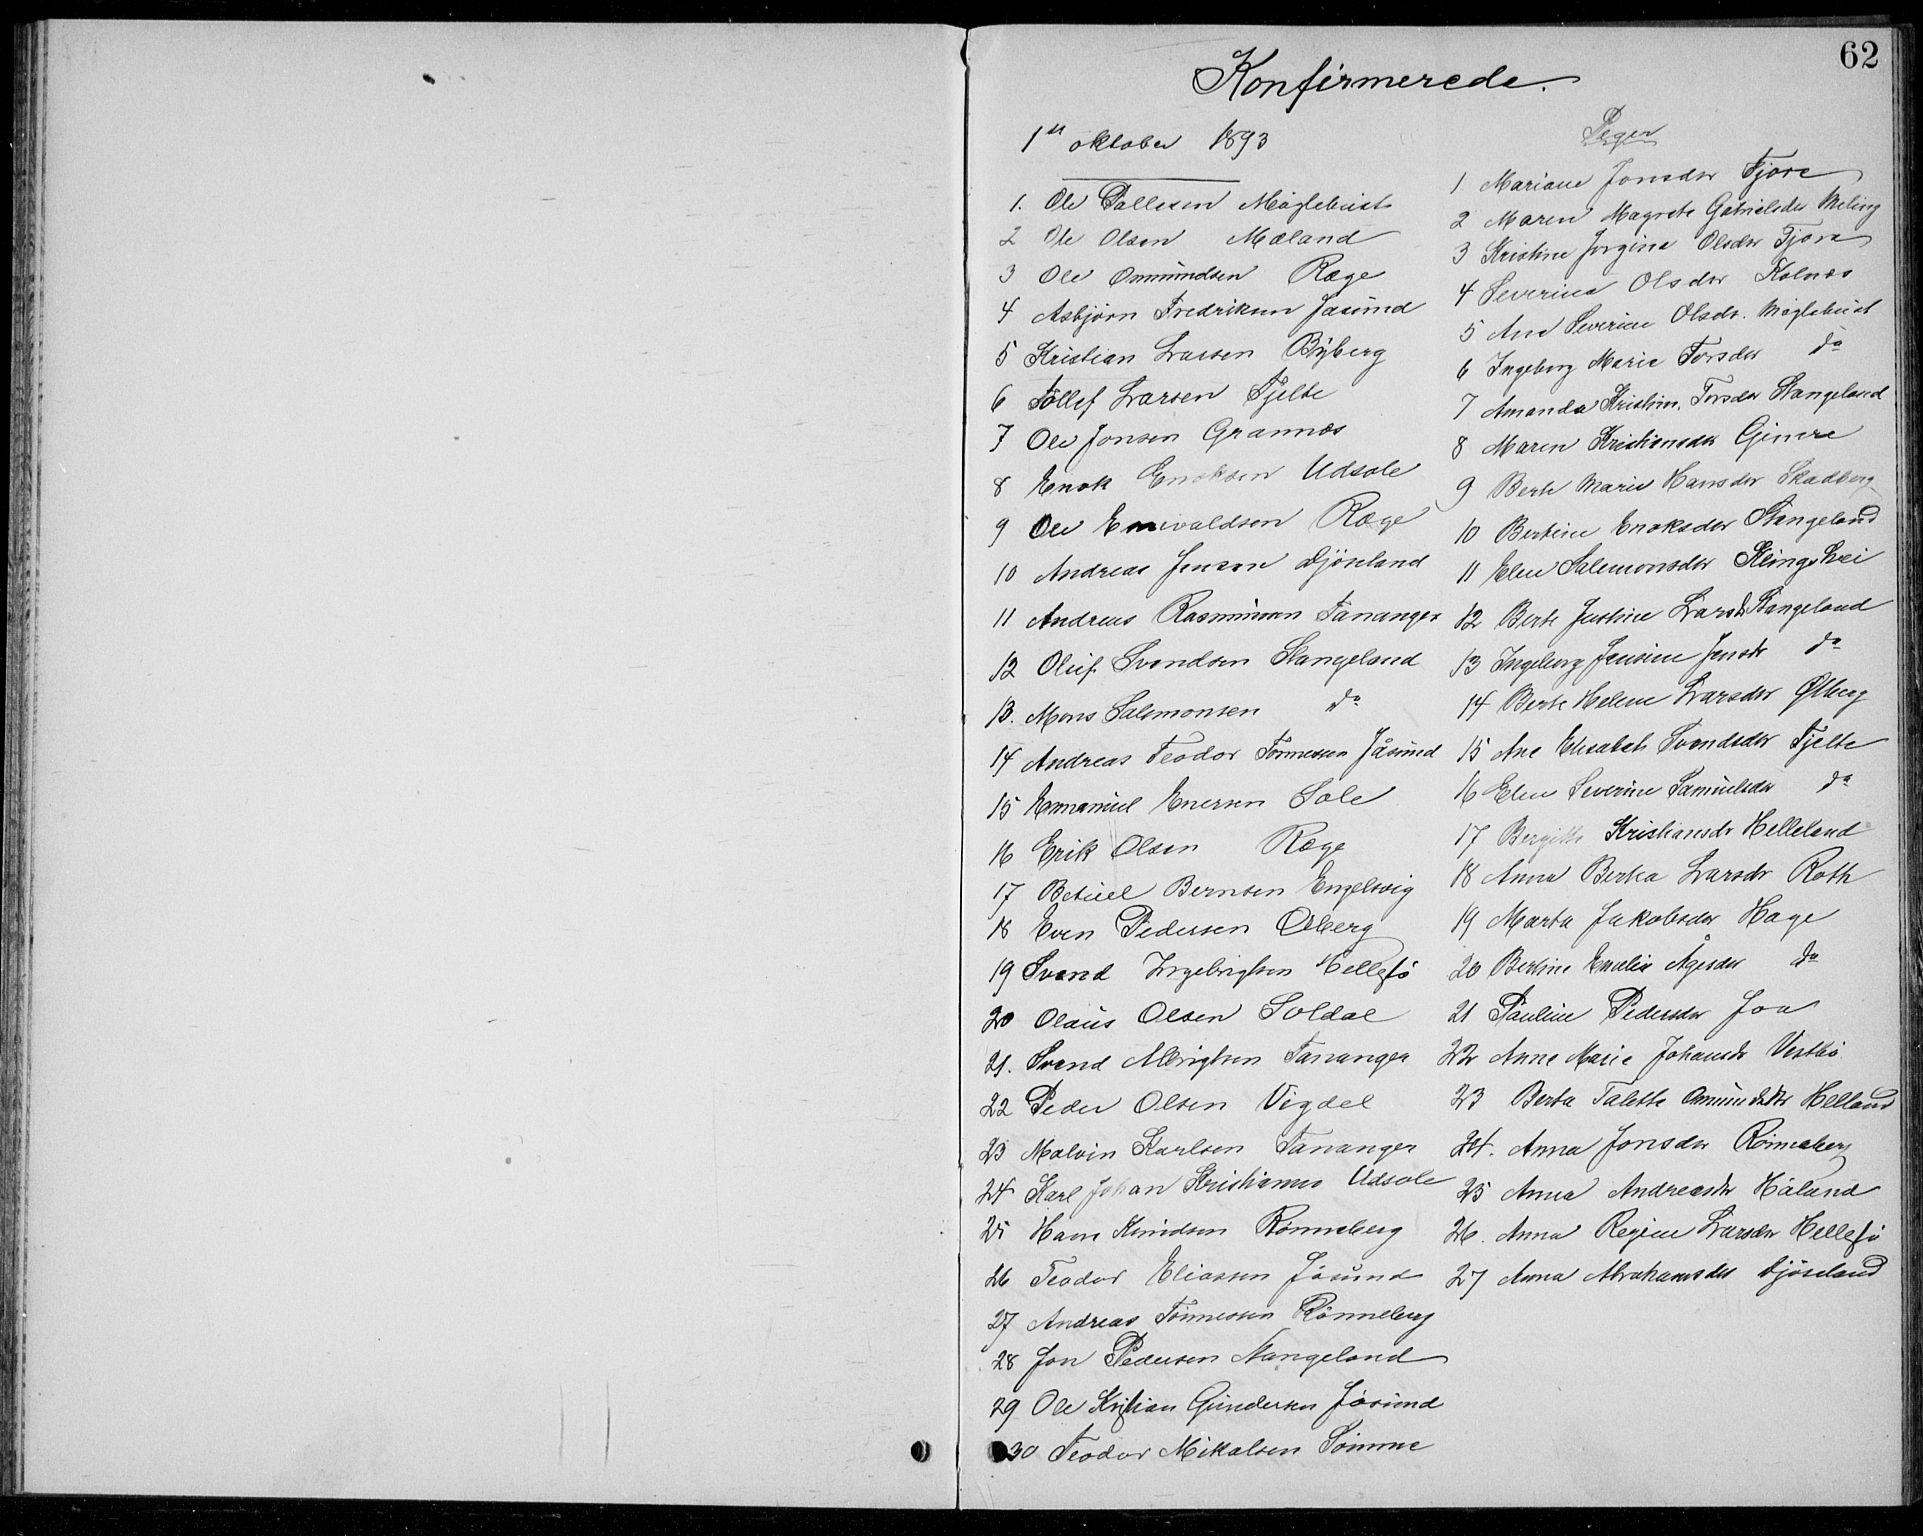 62
Konfirmerede.
1ste oktober 1893
1. Ole Pallesen Møglebust
2 Ole Olsen Mæland
3 Ole Ommundsen Ræge
4 Asbjørn Fredriksen Jasund
5 Kristian Larsen Byberg
6 Tollef Larsen Tjelte
7 Ole Jonsen Grannæs
8 Enok Enoksen Udsole
9 Ole Enevaldsen Ræge
10 Andreas Jensen Djøseland
11 Andreas Rasmussen Tananger
12 Oluf Svendsen Stangeland
13. Mons Salomonsen do
14 Andreas Teodor Tønnessen Jåsund
15 Emanuel Enersen Sole
16 Erik Olsen Ræge
17 Betuel Bernsen Engelsvig
18 Even Pedersen Ølberg
19 Svend Ingebrigtsen Hellesø
20 Olaus Olsen Soldal
21. Svend Albrigtsen Tananger
22 Peder Olsen Vigdel
23 Malvin Karlsen Tananger
24 Karl Johan Kristiansen Udsole
25 Hans Knudsen Rønneberg
26 Teodor Eliassen Jåsund
27 Andreas Tønnessen Rønneberg
28 Jon Pedersen Stangeland
29 Ole Kristian Gundersen Jåsund
30 Teodor Mikalsen Sømme
Piger
1 Mariane Jonsdtr Tjora
2 Maren Magrete Gabrielsdtr Meling
3 Kristine Jorgine Olsdtr Tjora
4 Severine Olsdtr Kolnæs
5 Ane Severine Olsdtr. Møglebust
6 Ingeborg Marie Torsdtr do
7 Amanda Kristine Torsdtr Stangeland
8 Maren Kristiansdtr Gimre
9 Berte Marie Hansdtr Skadberg
10 Bertine Enoksdtr Stangeland
11 Elen Salemonsdtr
12 Berte Justine Larsdtr Stangeland
13 Ingeborg Jensine Jensdtr do
14 Berte Helene Larsdtr Ølberg
15 Ane Elisabeth Svendsdtr Tjelte
16 Elen Severine Samuelsdtr do
17 Bergitte Kristiansdtr Helleland
18 Anna Berta Larsdtr Roth
19 Marta Jakobsdtr Hage
20 Bertine Emelie Ågesdtr do
21 Pauline Pedersdtr Joa
22 Anne Marie Johansdtr Vestbø
23 Berta Talette Omundsdtr Helland
24. Anna Jonsdtr Rønneberg
25 Anna Andreasdtr Håland
26. Anna Regine Larsdtr Hellesø
27 Anna Abrahamsdtr Djøseland